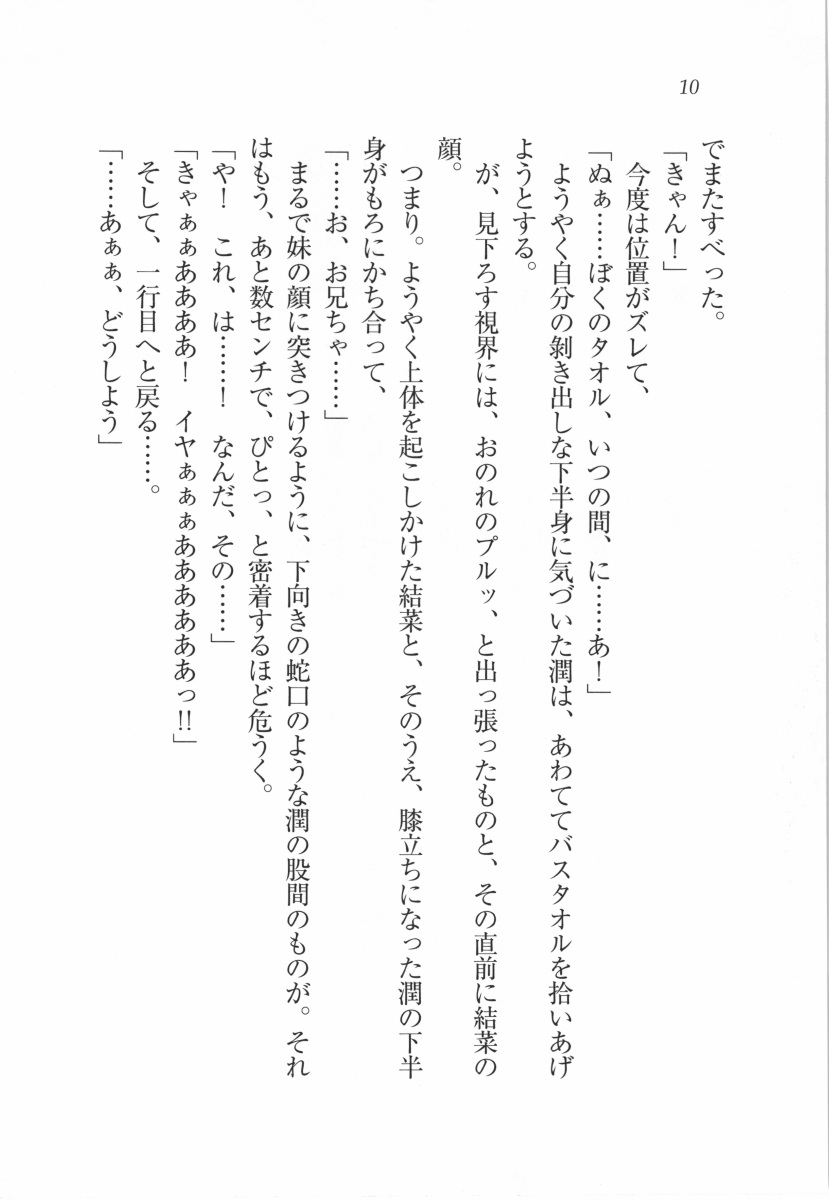 10
でまたすべった。
「きゃん！」
今度は位置がズレて、
「ぬぁ……ぼくのタオル、いつの間、に……あ！」
ようやく自分の剝き出しな下半身に気づいた潤は、あわててバスタオルを拾いあげ
ようとする。
が、見下ろす視界には、おのれのプルッ、と出っ張ったものと、その直前に結菜の
顔。
つまり。ようやく上体を起こしかけた結菜と、そのうえ、膝立ちになった潤の下半
身がもろにかち合って、
「……お、お兄ちゃ……」
まるで妹の顔に突きつけるように、下向きの蛇口のような潤の股間のものが。それ
はもう、あと数センチで、ぴとっ、と密着するほど危うく。
「や！　これ、は……！　なんだ、その……」
「きゃぁぁああああ！　イヤぁぁぁああああああっ!!」
そして、一行目へと戻る……。
「……あぁぁ、どうしよう」